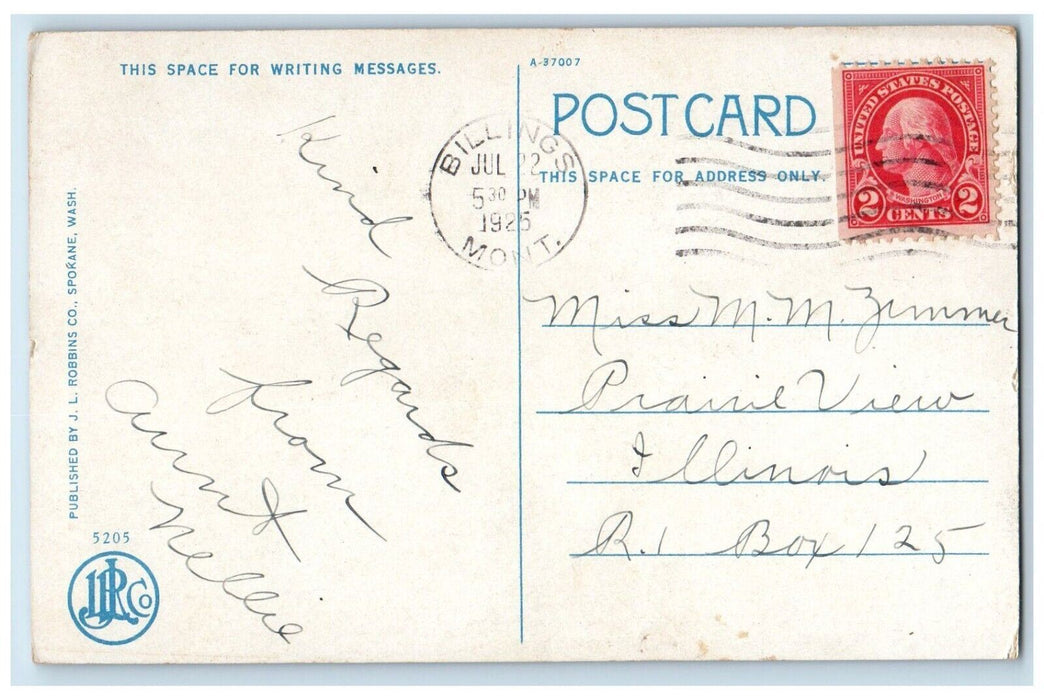 THIS SPACE FOR WRITING MESSAGES.
Kind
Regards
from
Aunt
Nellie
PUBLISHED BY J. L. ROBBINS CO., SPOKANE, WASH.
5205
JLR Co
A-37007
POSTCARD
THIS SPACE FOR ADDRESS ONLY.
BILLINGS
JUL 22
5 30 PM
1925
MONT.
UNITED STATES POSTAGE
WASHINGTON
2 CENTS 2
Miss M. M. Zimmer
Prairie View
Illinois
R. 1 Box 125